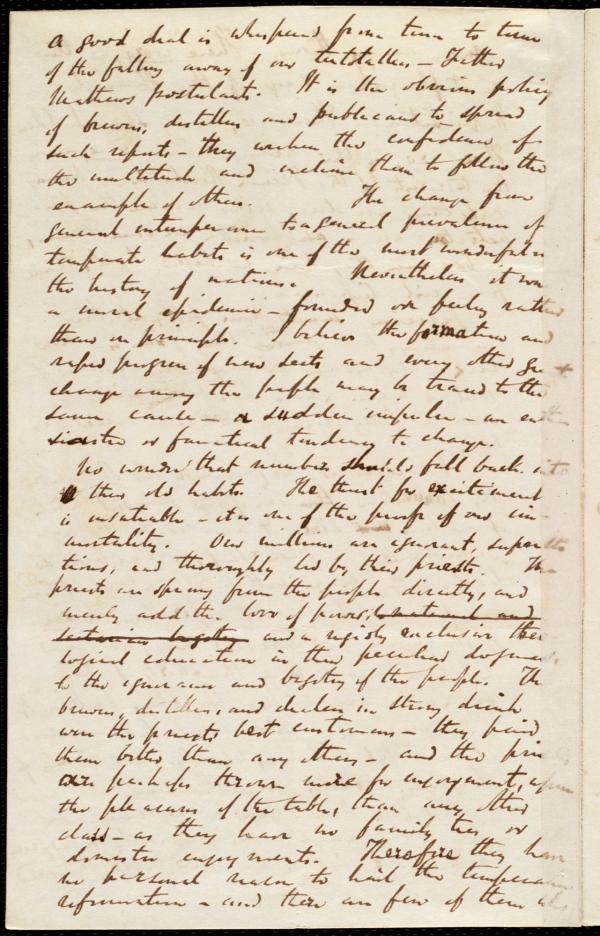 A good deal is whispered from time to time
of the falling away of our teetotallers – Father
Mathews postulants. It is the obvious policy
of brewers, distillers and publicans to spread
such reports – they weaken the confidence of
the multitude and incline them to follow the
example of others. The change from
general intemperance to a general prevalence of
temperate habits is one of the most wonderful in
the history of nations. Nevertheless it was
a moral epidemic – founded on feeling rather
than on principle. I believe the formation and
rapid progress of new sects and every other
change among the people may be traced to the
same cause – a sudden impulse – an enthu
siastic or fanatical tendency to change.
No wonder that numbers should fall back into
their old habits. The thirst for excitement
is insatiable – it is one of the proofs of our im-
mortality. Our millions are ignorant, supersti
tious, and thoroughly led by their priests. The
priests are sprung from the people directly, and
merely add the love of power, and
sectarian bigotry and a rigidly exclusive theo
logical education in their peculiar dogmas,
to the ignorance and bigotry of the people. The
brewers, distillers, and dealers in strong drink
were the priests best customers – they paid
them better than any others – and the priests
are perhaps thrown more for enjoyment, upon
the pleasures of the table, than any other
class – as they have no family ties or
domestic enjoyments. Therefore they have
no personal reason to hail the temperance
reformation – and there are few of them who